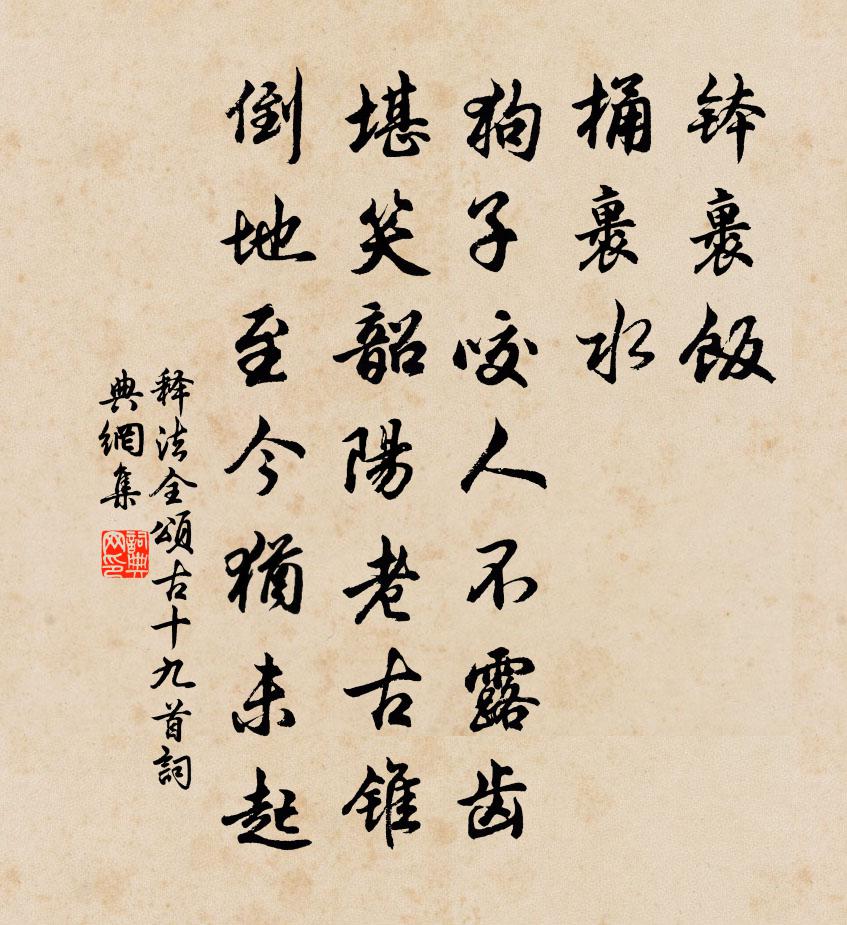 钵裹飯
桶裹水
狗子咬人不露齿
堪笑韶陽老古錐
倒地至今猶未起
释法全頌古十九首詞
典網集
詞典
网印